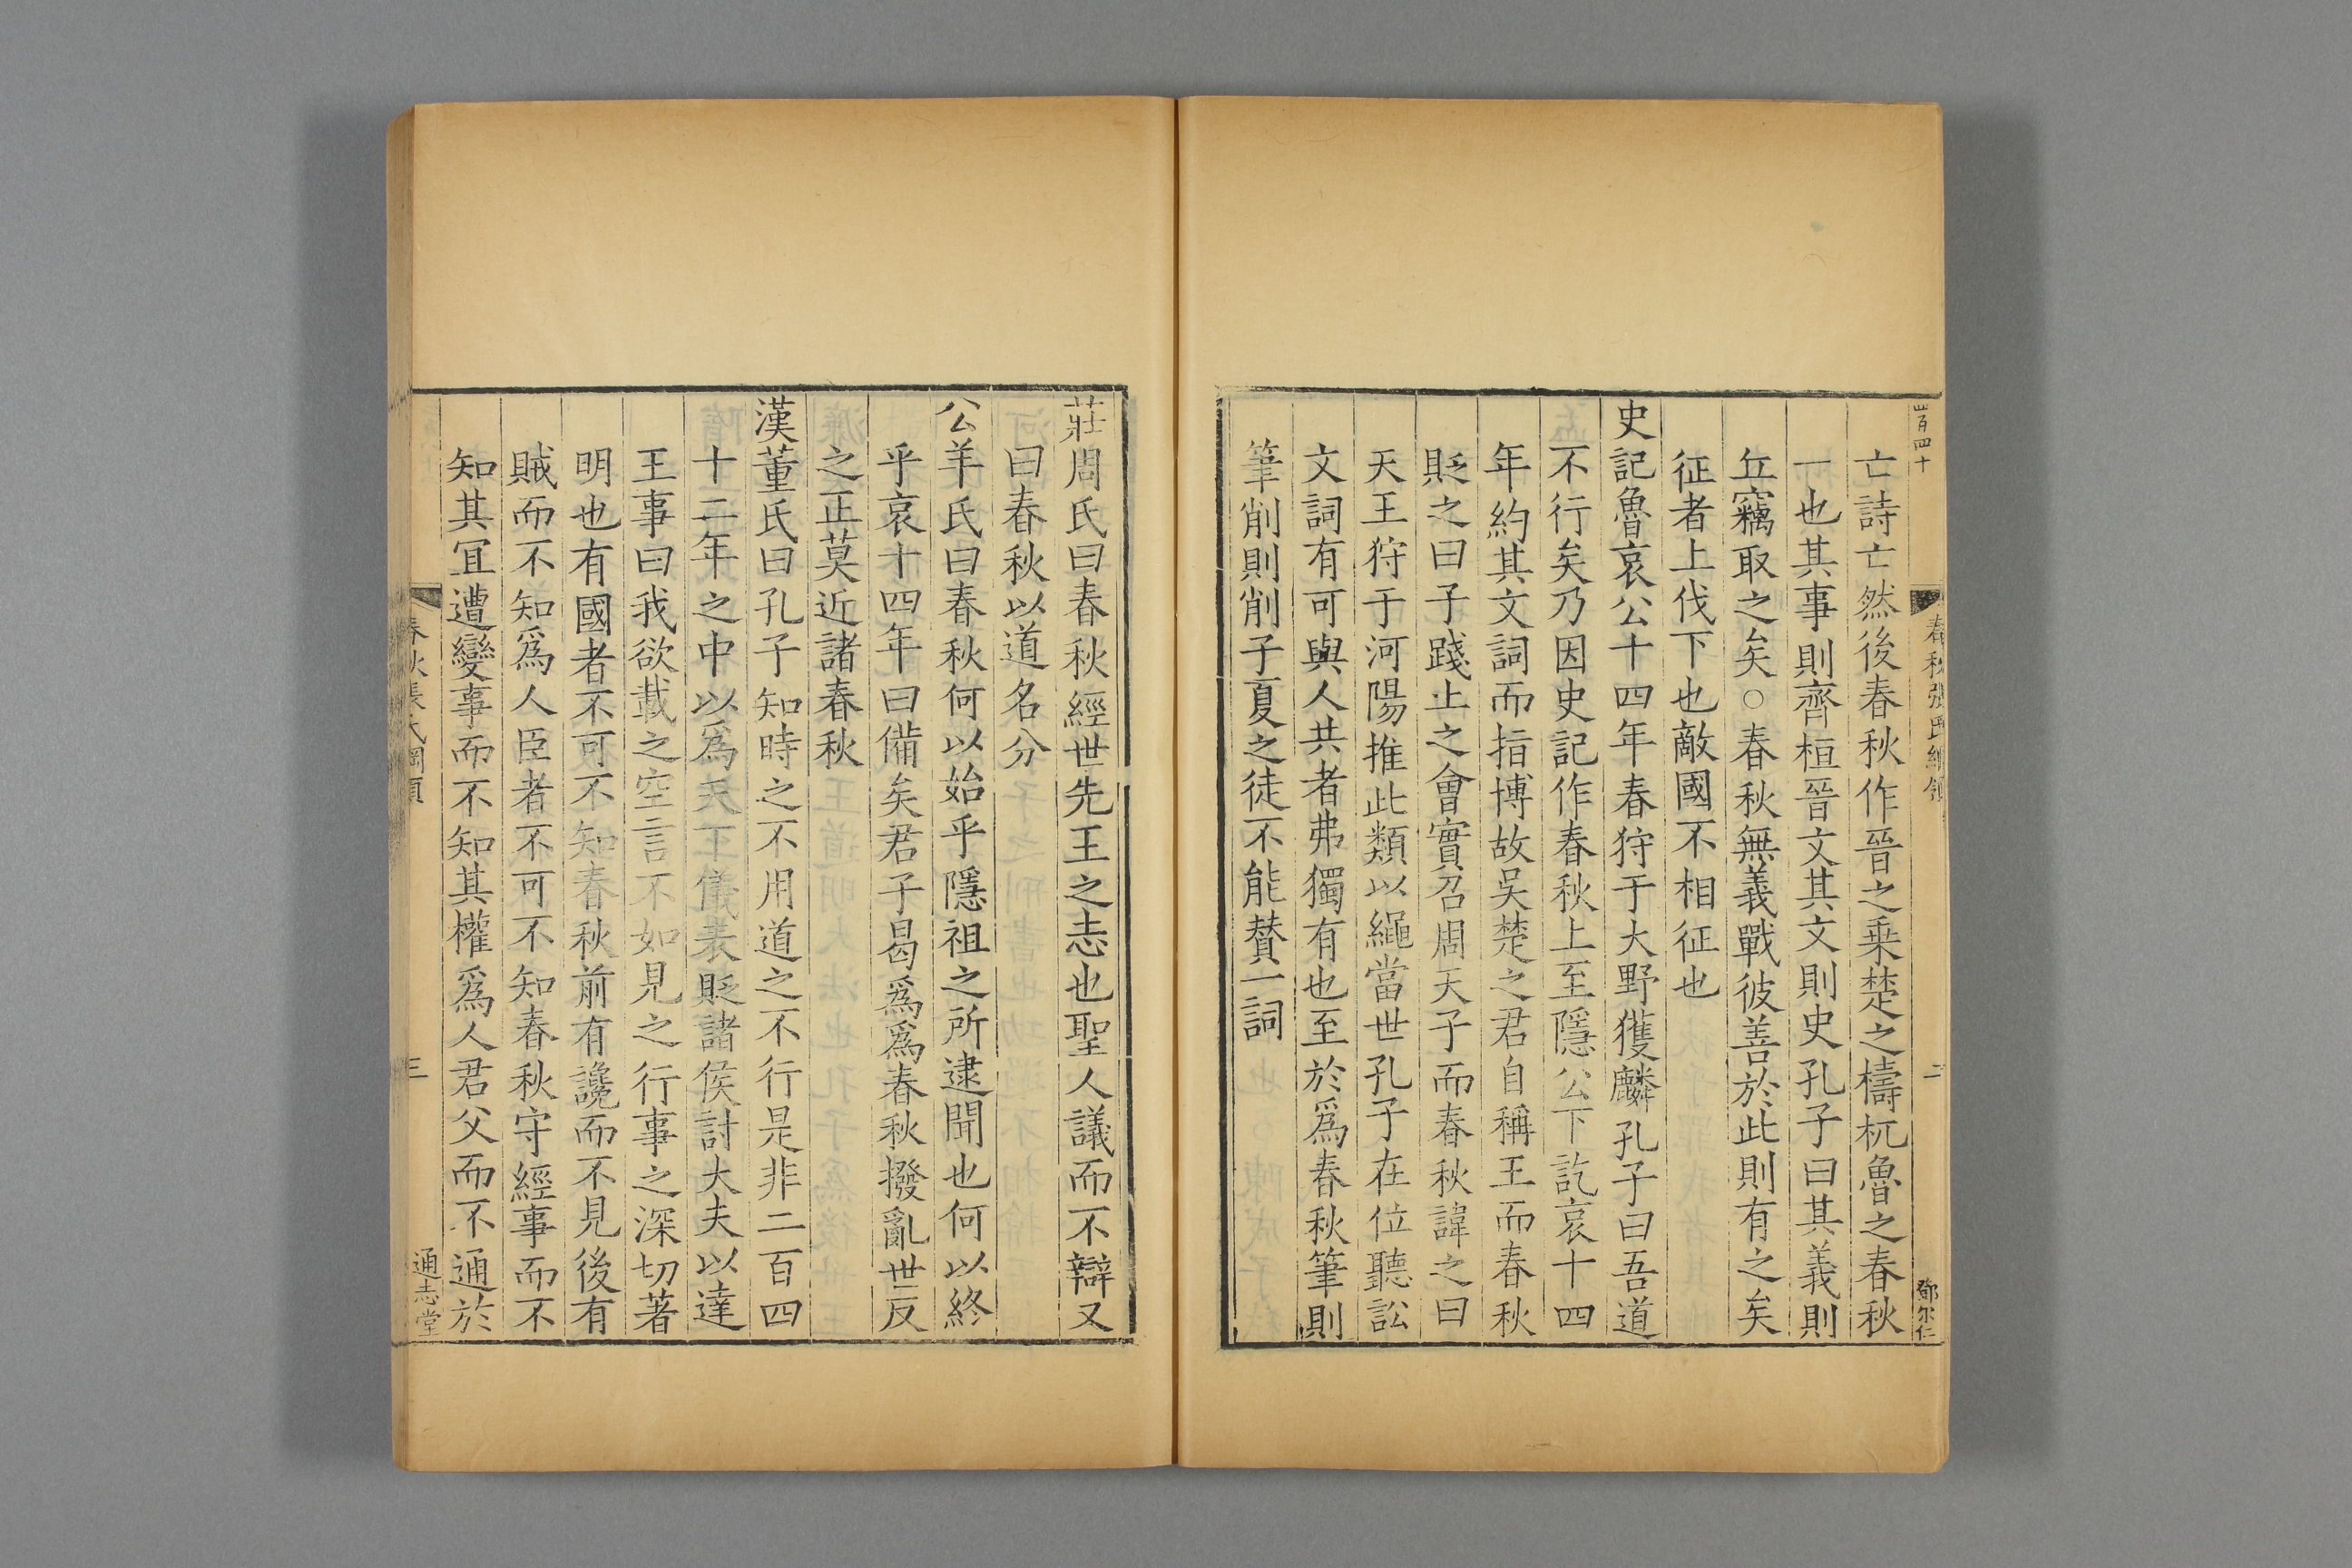 亡詩亡然後春秋作晉之乗楚之檮杌魯之春秋
一也其事則齊桓晉文其文則史孔子曰其義則
丘竊取之矣○春秋無義戰彼善於此則有之矣
征者上伐下也敵國不相征也
史記魯哀公十四年春狩于大野獲麟孔子曰吾道
不行矣乃因史記作春秋上至隱公下訖哀十四
年約其文詞而指博故吴楚之君自稱王而春秋
貶之曰子踐土之會實召周天子而春秋諱之曰
天王狩于河陽推此類以繩當世孔子在位聽訟
文詞有可與人共者弗獨有也至於爲春秋筆則
筆削則削子夏之徒不能賛一詞
春秋張氏綱領
二
鄧尔仁
莊周氏曰春秋經世先王之志也聖人議而不辯又
曰春秋以道名分
公羊氏曰春秋何以始乎隱祖之所逮聞也何以終
乎哀十四年曰備矣君子曷爲爲春秋撥亂世反
之正莫近諸春秋
漢董氏曰孔子知時之不用道之不行是非二百四
十二年之中以爲天下儀表貶諸侯討大夫以達
王事曰我欲載之空言不如見之行事之深切著
明也有國者不可不知春秋前有讒而不見後有
賊而不知爲人臣者不可不知春秋守經事而不
知其宜遭變事而不知其權爲人君父而不通於
春秋張氏綱領
三
通志堂